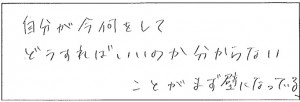 自分が今何をして
どうすればいいのか分からない
ことがまず壁になっている